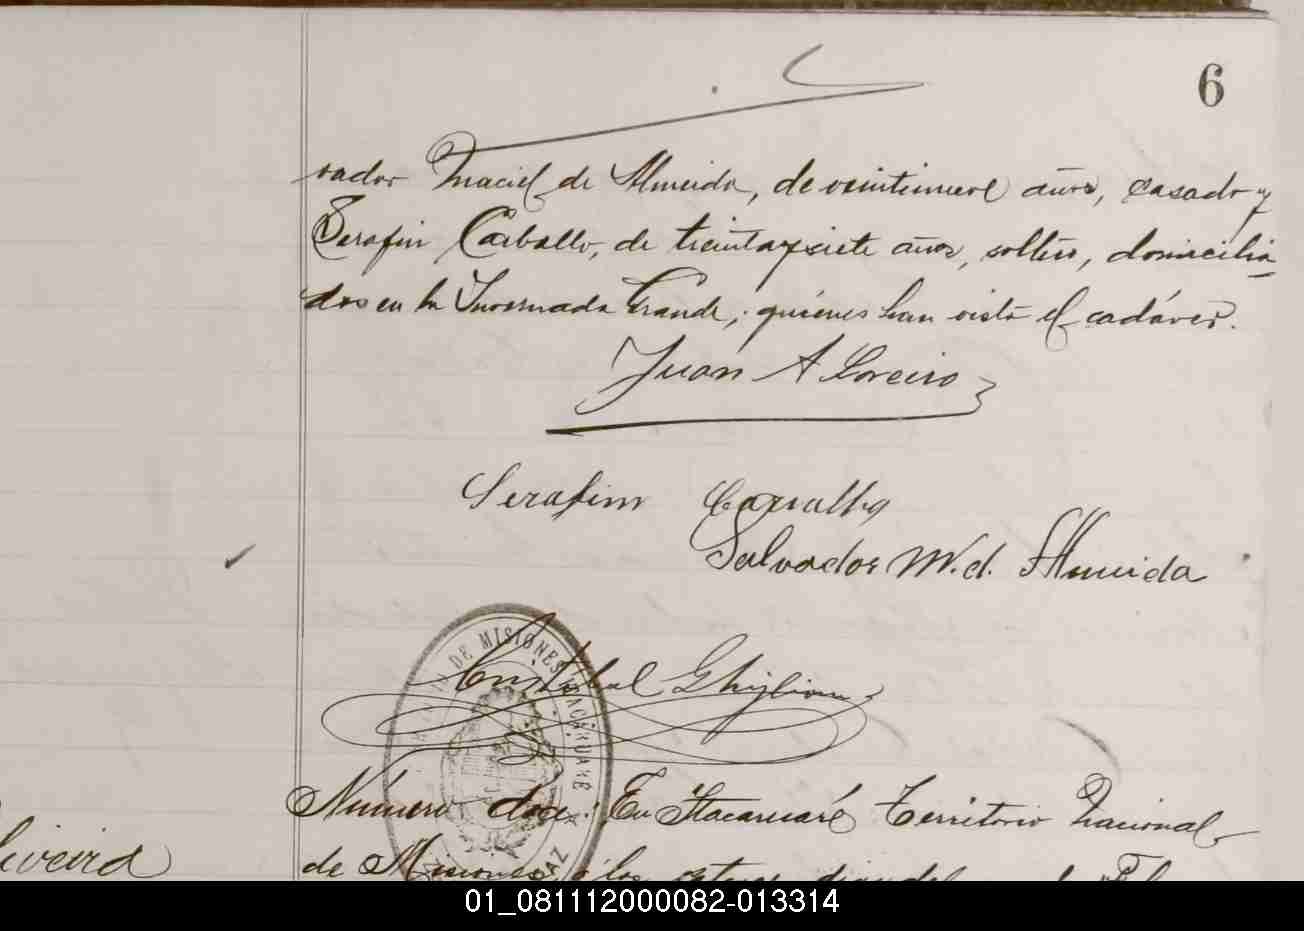 6
vador Maciel de Almeida, de veintinueve años, casado y
Serafin Carballo, de treinta y siete años, soltero, domicilia
dos en la Invernada Grande, quiénes han visto el cadáver.
Juan A Loreiro
Serafim Carvalho
Salvador M. d. Almeida
Cristobal Ghiglione
DE MISIONES ITACARUARÉ
Número doce: En Itacaruaré Territorio Nacional
liveira
de Misiones, á los catorce dias del
01_081112000082-013314